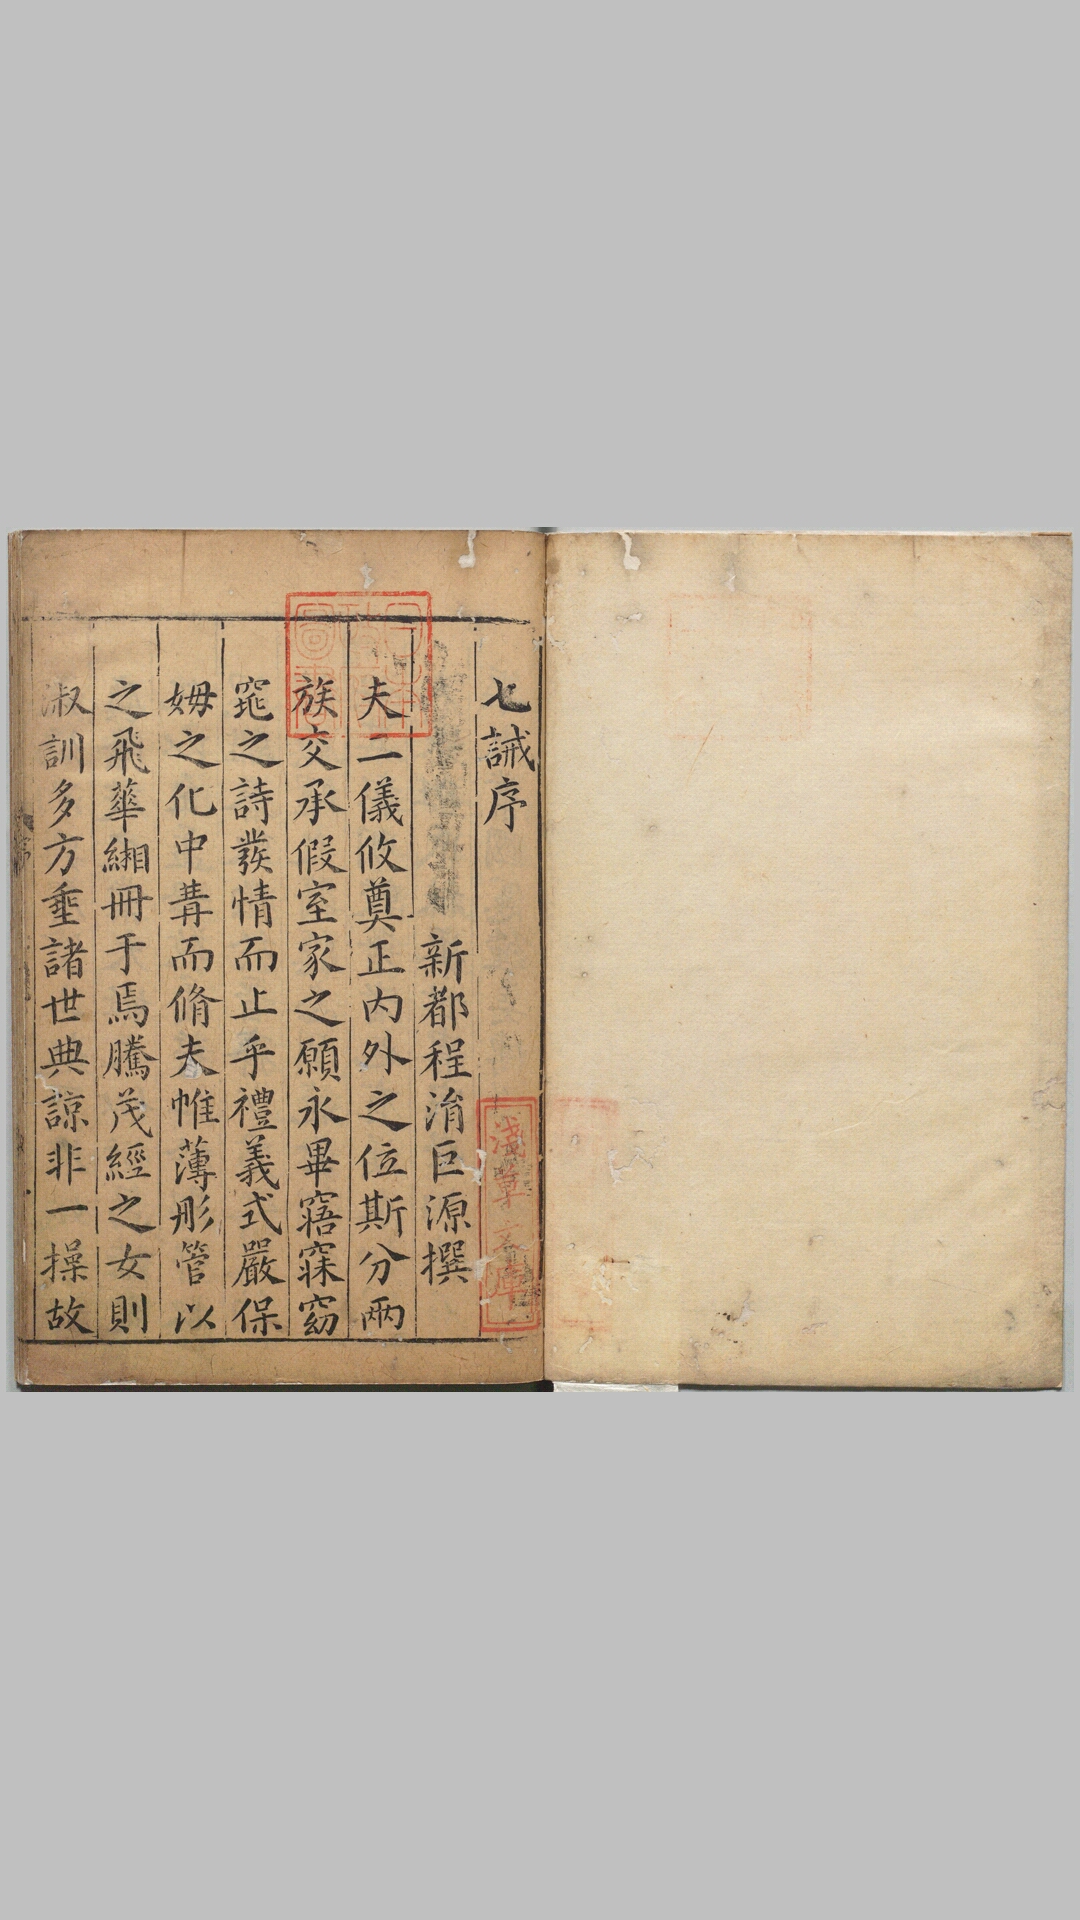 七誡序
新都程涓巨源撰
夫二儀攸奠正内外之位斯分兩
族交承假室家之願永畢寤寐窈
窕之詩發情而止乎禮義式嚴保
姆之化中冓而脩夫帷薄彤管以
之飛華緗冊于焉騰茂經之女則
淑訓多方垂諸世典諒非一操故
淺草文庫